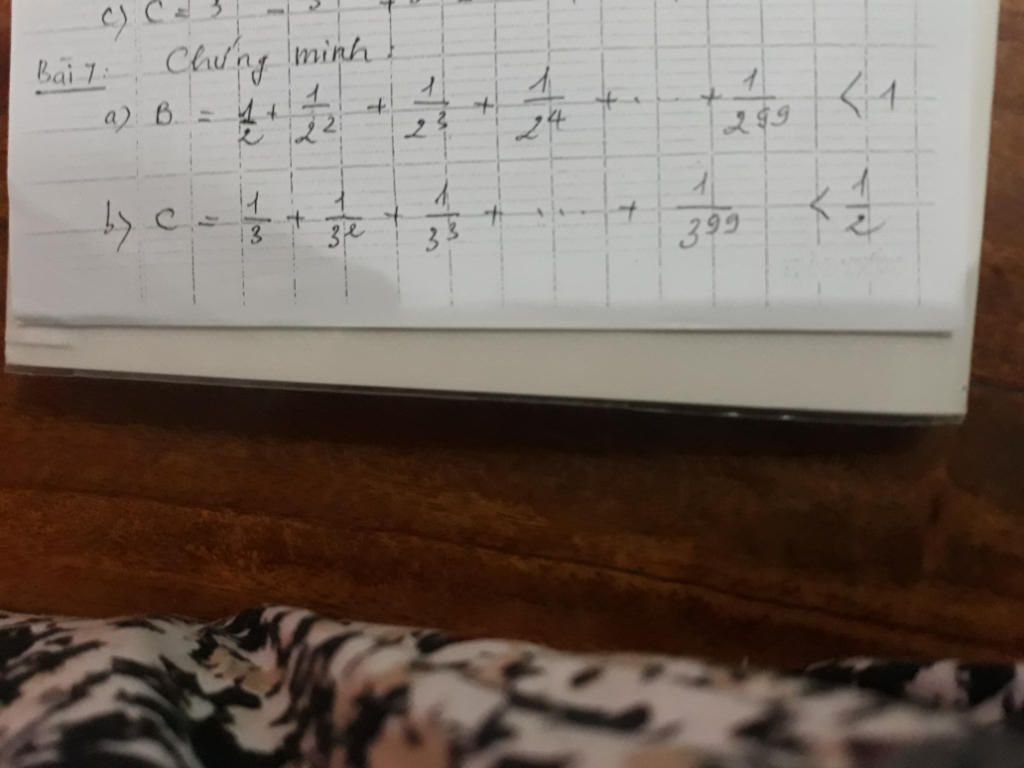 c) C = 3
Bài 7: Chứng minh:
a) B = 1/2 + 1/2² + 1/2³ + 1/2⁴ + .... + 1/2⁹⁹ < 1
b) C = 1/3 + 1/3² + 1/3³ + .... + 1/3⁹⁹ < 1/2